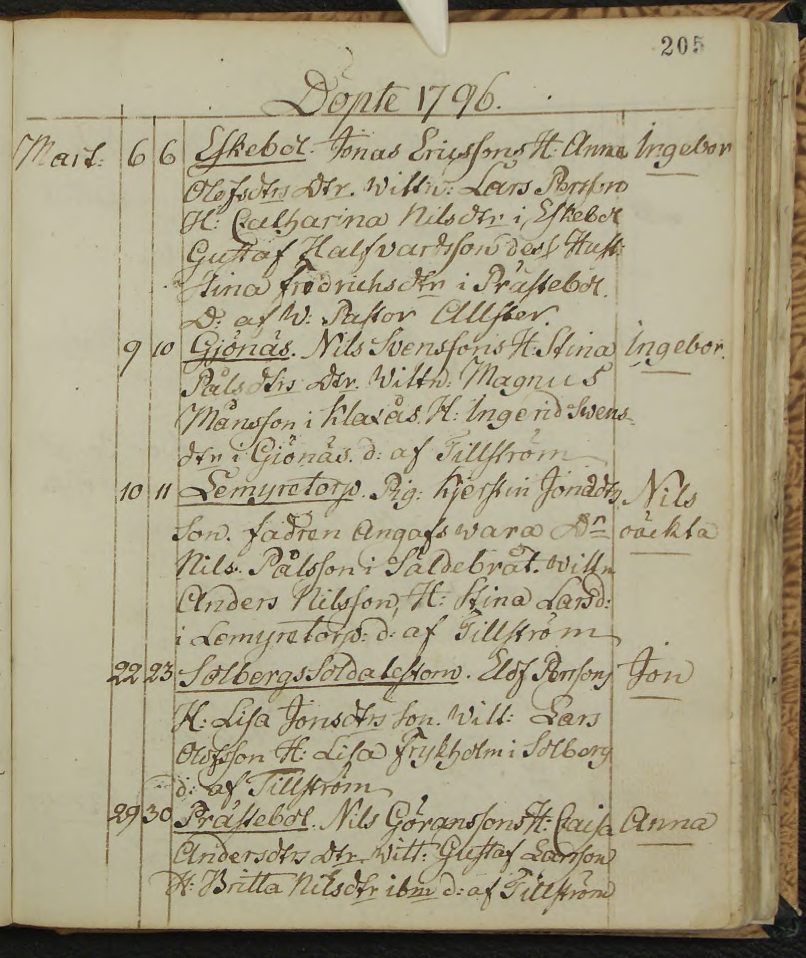 205
Döpte 1796.
Mart: 6 6 Eskebol. Jonas Ericssons H: Anna Ingebor
Olofsdtrs Dtr. Wittn: Lars Persson
H: Catharina Nilsdtr i Eskebol
Gustaf Halfvardsson dess Hust:
Stina Fredrichsdtr i Prästebol.
D: af W: Pastor Allster.
9 10 Gjönäs. Nils Svenssons H: Stina Ingebor.
Pålsdtrs Dtr. Wittn: Magnus
Månsson i Klaxås. H: Ingerid Swens-
dtr i Gjönäs. d: af Tillström
10 11 Lemyretorp. Pig: Kjerstin Jonsdtrs Nils
son. fadren Angafs wara Dr oäckta
Nils Pålsson i Såldebråt. Wittn
Anders Nilsson, H: Stina Larsd:
i Lemyretorp: d: af Tillström
22 23 Solbergs Soldatestom. Elof Perssons Jon
H: Lisa Jonsdtrs son. Witt: Lars
Olofsson H: Lisa Frykholm i Solberg
d: af Tillström
29 30 Prästebol. Nils Göranssons H: Caisa Anna
Andersdtrs Dtr. Witt: Gustaf Larsson
H: Britta Nilsdtr ibm d: af Tillström